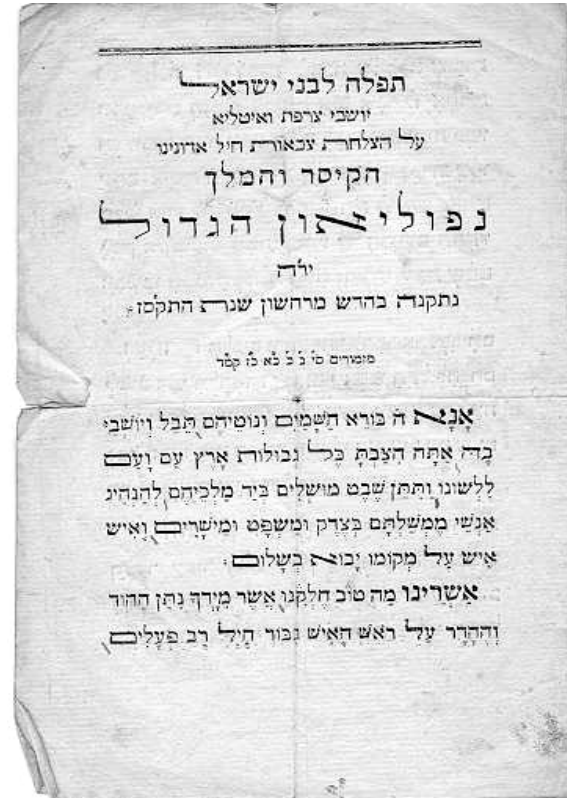 תפלה לבני ישראל
יושבי צרפת ואיטליא
על הצלחת צבאות חיל אדונינו
הקיסר והמלך
נפוליאון הגדול
יר״ה
נתקנה בחדש מרחשון שנת התקס״ז
מזמורים סי׳ ב׳ כ׳ כ״א כ״ז קמ״ד
אָנָא ה׳ בּוֹרֵא הַשָּׁמַיִם וְנוֹטֵיהֶם תֵּבֵל וְיוֹשְׁבֵי
בָהּ אַתָּה הִצַּבְתָּ כָּל גְבוּלוֹת אָרֶץ עַם וָעַם
לִלְשׁוֹנוֹ וַתִּתֵּן שֵׁבֶט מוֹשְׁלִים בְּיַד מַלְכֵיהֶם לְהַנְהִיג
אַנְשֵׁי מֶמְשַׁלְתָּם בְּצֶדֶק וּמִשְׁפָּט וּמֵישָׁרִים וְאִישׁ
אִישׁ עַל מְקוֹמוֹ יָבוֹא בְשָׁלוֹם :
אַשְׁרֵינוּ מַה טּוֹב חֶלְקֵנוּ אֲשֶׁר מִיָּדְךָ נִתַּן הַהוֹד
וְהֶהָדָר עַל רֹאשׁ הָאִישׁ גִּבּוֹר חַיִל רַב פְּעָלִים